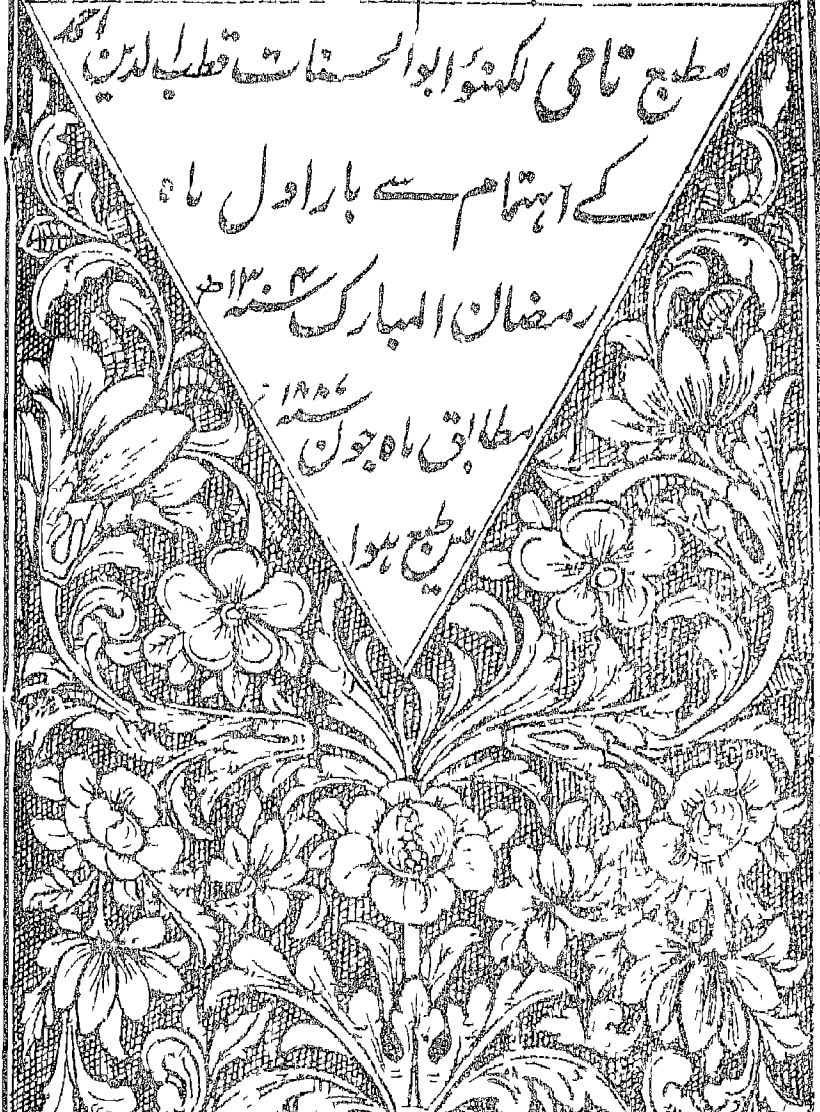 مطبع نامی لکھنؤ ابوالحسنات قطب الدین احمد
کے اہتمام سے بار اول ماہ
رمضان المبارک
مطابق ماہ جون
میں طبع ہوا